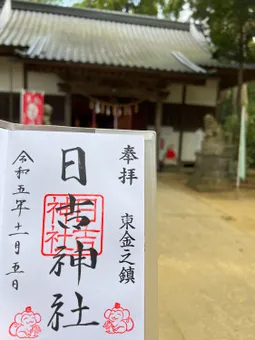 奉拝
東金之鎮
日吉神社
日吉
神社
令和五年十一月五日